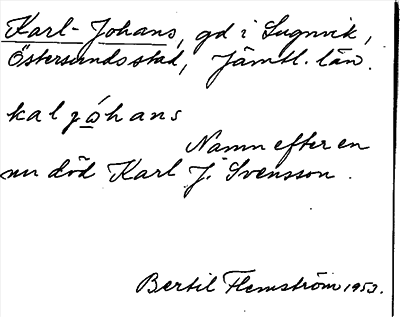 Karl-Johans, gd i Lugnvik,
Östersunds stad, Jämtl. län.
kaljóhans
Namn efter en
nu död Karl J. Svensson.
Bertil Flemström 1953.